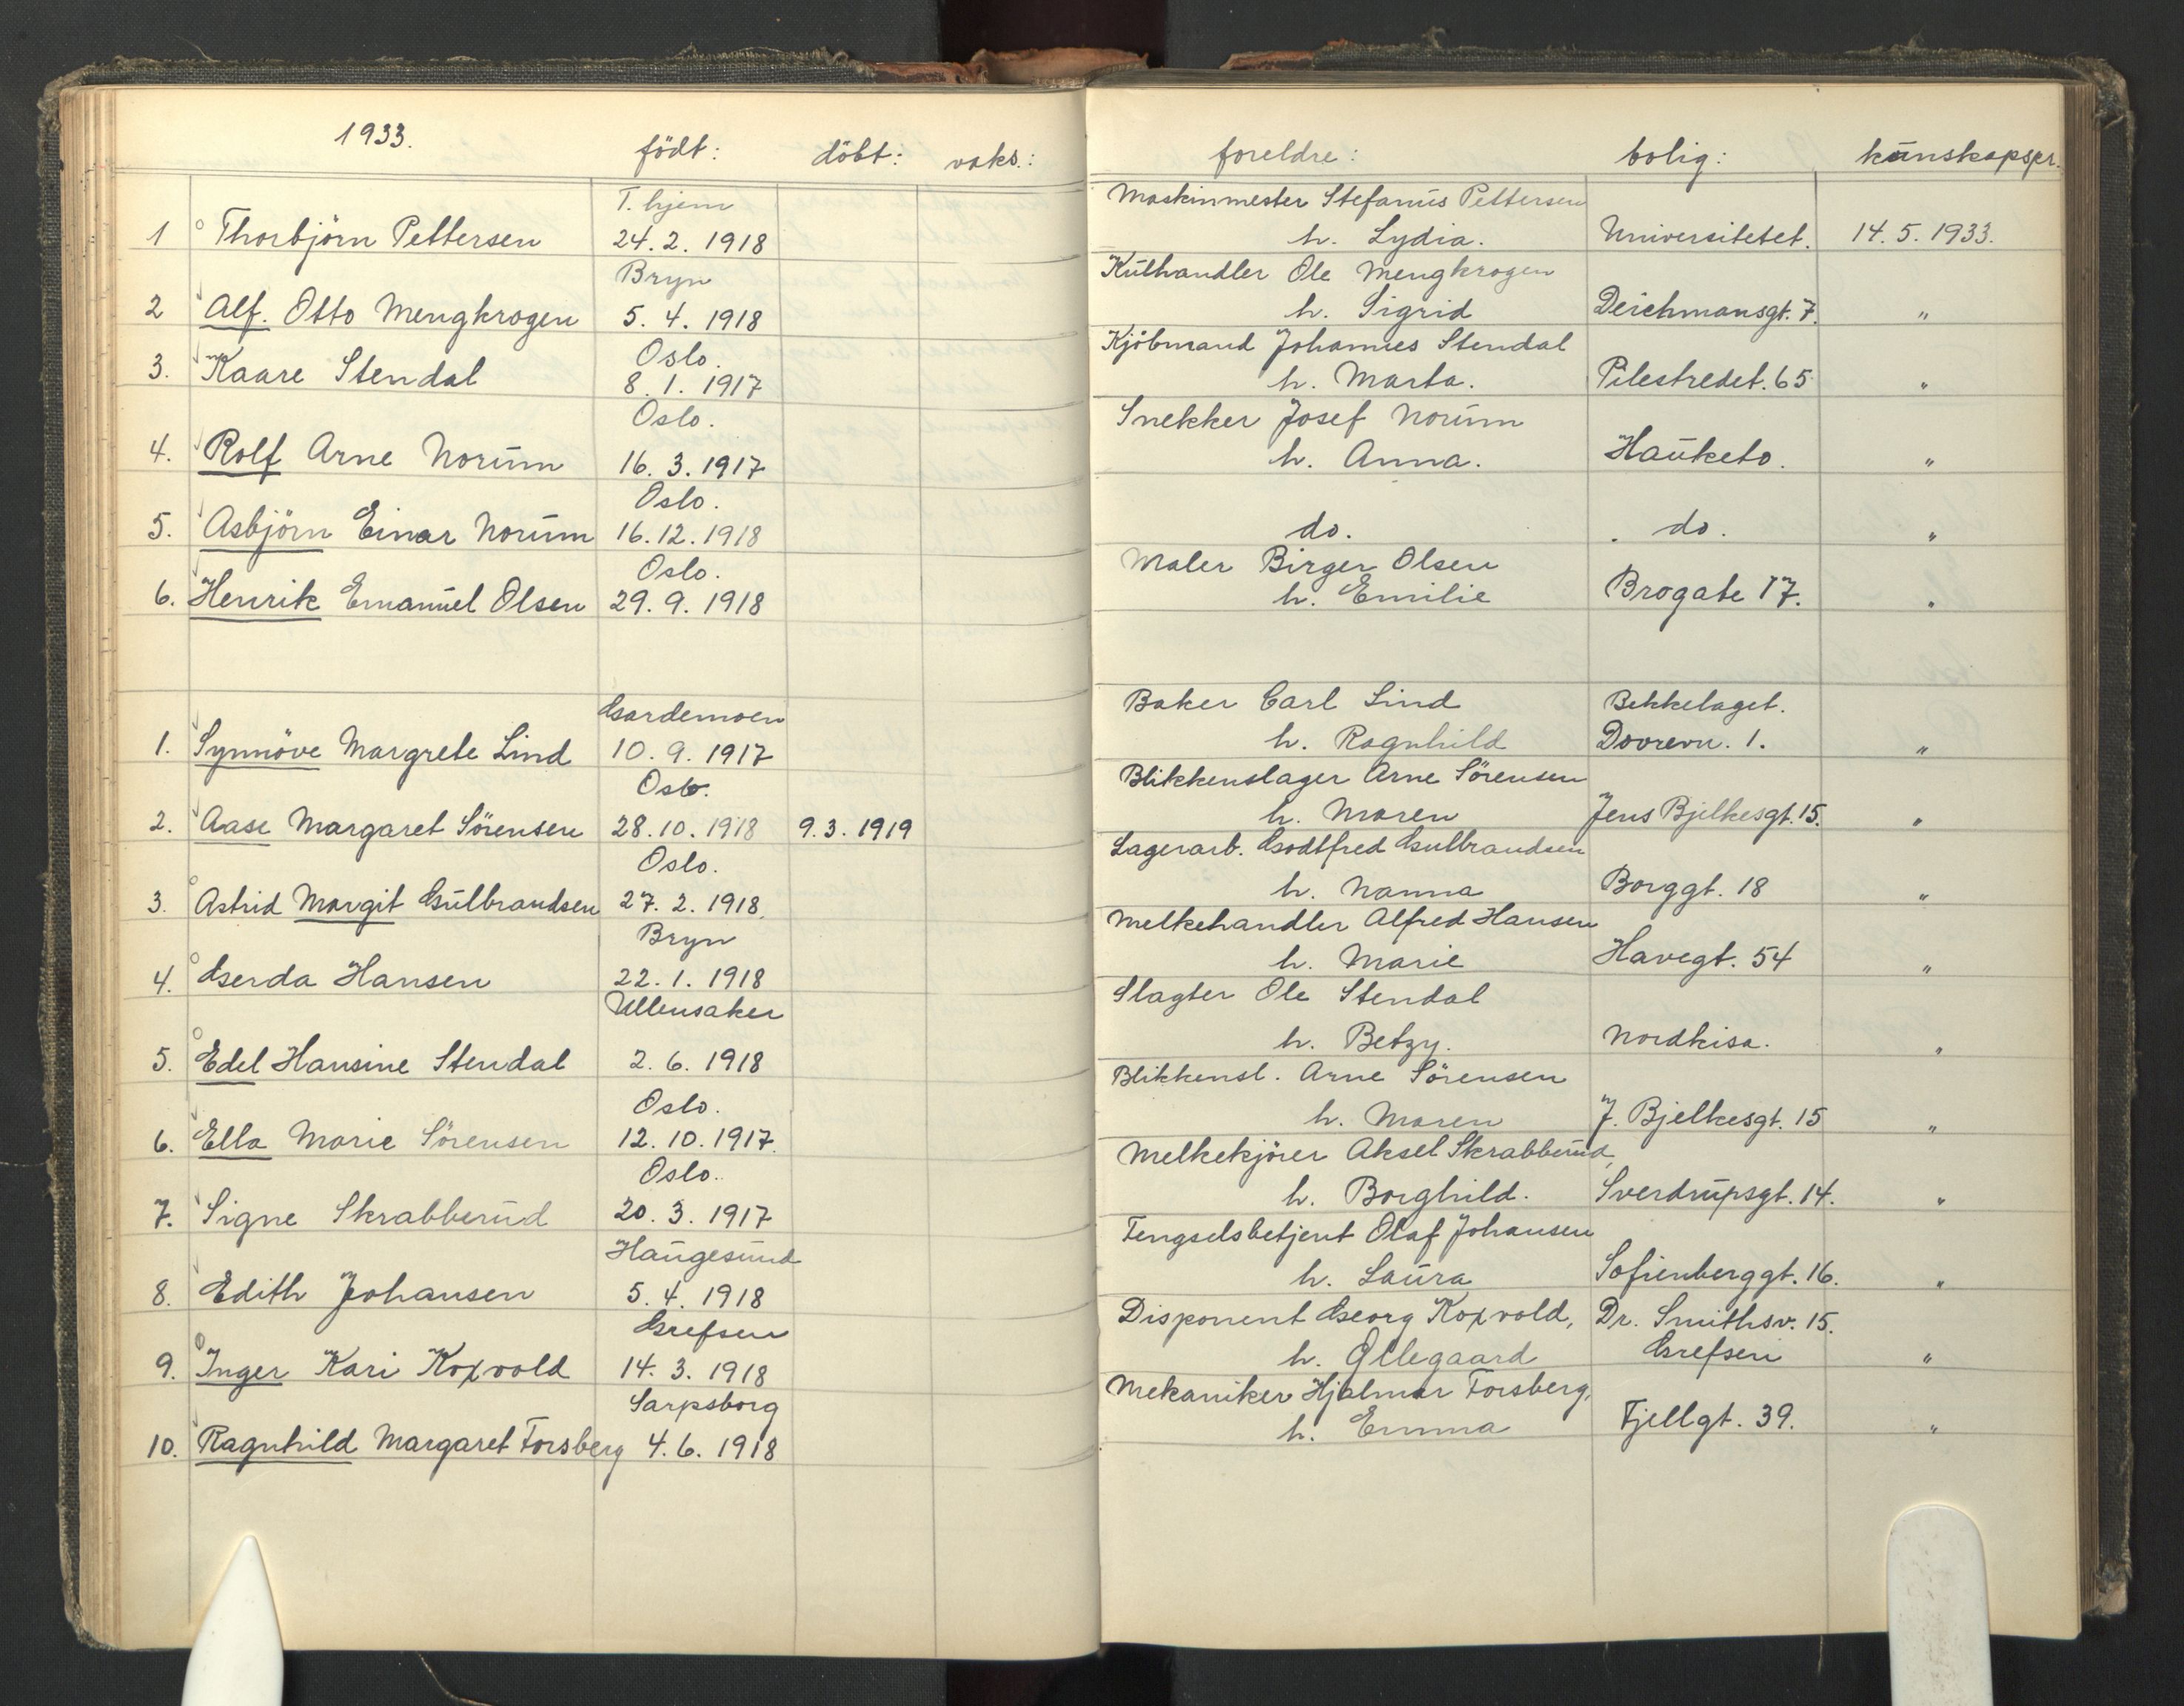 1933.
födt: döbt: vaks.: foreldre: bolig: kūnskapspr.
T. hjem Maskinmester Stefanūs Pettersen
1 Thorbjörn Pettersen 24.2.1918 h. Lydia. Universitetet. 14.5.1933.
Bryn Kūlhandler Ole Mengkrogen
2 Alf. Otto Mengkrogen 5.4.1918 h. Sigrid Deichmansgt. 7. "
Oslo. Kjöbmand Johannes Stendal
3. Kaare Stendal 8.1.1917 h. Marta. Pilestredet. 65 "
Oslo. Snekker Josef Norūm
4. Rolf Arne Norūm 16.3.1917 h. Anna. Haūketo. "
Oslo.
5. Asbjörn Einar Norūm 16.12.1918 do. do. "
Oslo. Maler Birger Olsen
6. Henrik Emanūel Olsen 29.9.1918 h. Emilie Brogate 17. "
Gardemoen Baker Carl Lind Bekkelaget.
1. Synnöve Margrete Lind 10.9.1917 h. Ragnhild Dovrevn. 1. "
Oslo. Blikkenslager Arne Sörensen
2. Aase Margaret Sörensen 28.10.1918 9.3.1919 h. Maren Jens Bjelkesgt. 15. "
Oslo. Lagerarb. Godtfred Gulbrandsen
3. Astrid Margit Gūlbrandsen 27.2.1918. h. Nanna Borggt. 18 "
Bryn Melkehandler Alfred Hansen
4. Gerda Hansen 22.1.1918 h. Marie Havegt. 54 "
Ullensaker Slagter Ole Stendal
5. Edel Hansine Stendal 2.6.1918 h. Betzy. Nordkisa. "
Oslo. Blikkensl. Arne Sörensen
6. Ella Marie Sörensen 12.10.1917. h. Maren J. Bjelkesgt. 15 "
Oslo. Melkekjörer Aksel Skrabberūd,
7. Signe Skrabberūd 20.3.1917 h. Borghild. Sverdrūpsgt. 14. "
Haūgesūnd Fengselsbetjent Olaf Johansen
8. Edith Johansen 5.4.1918 h. Laūra Sofienberggt. 16. "
Grefsen Disponent Georg Koxvold, Dr. Smithsv. 15.
9. Inger Kari Koxvold 14.3.1918 h. Ollegaard Grefsen "
Sarpsborg Mekaniker Hjalmar Forsberg,
10. Ragnhild Margaret Forsberg 4.6.1918 h. Emma Fjellgt. 39. "